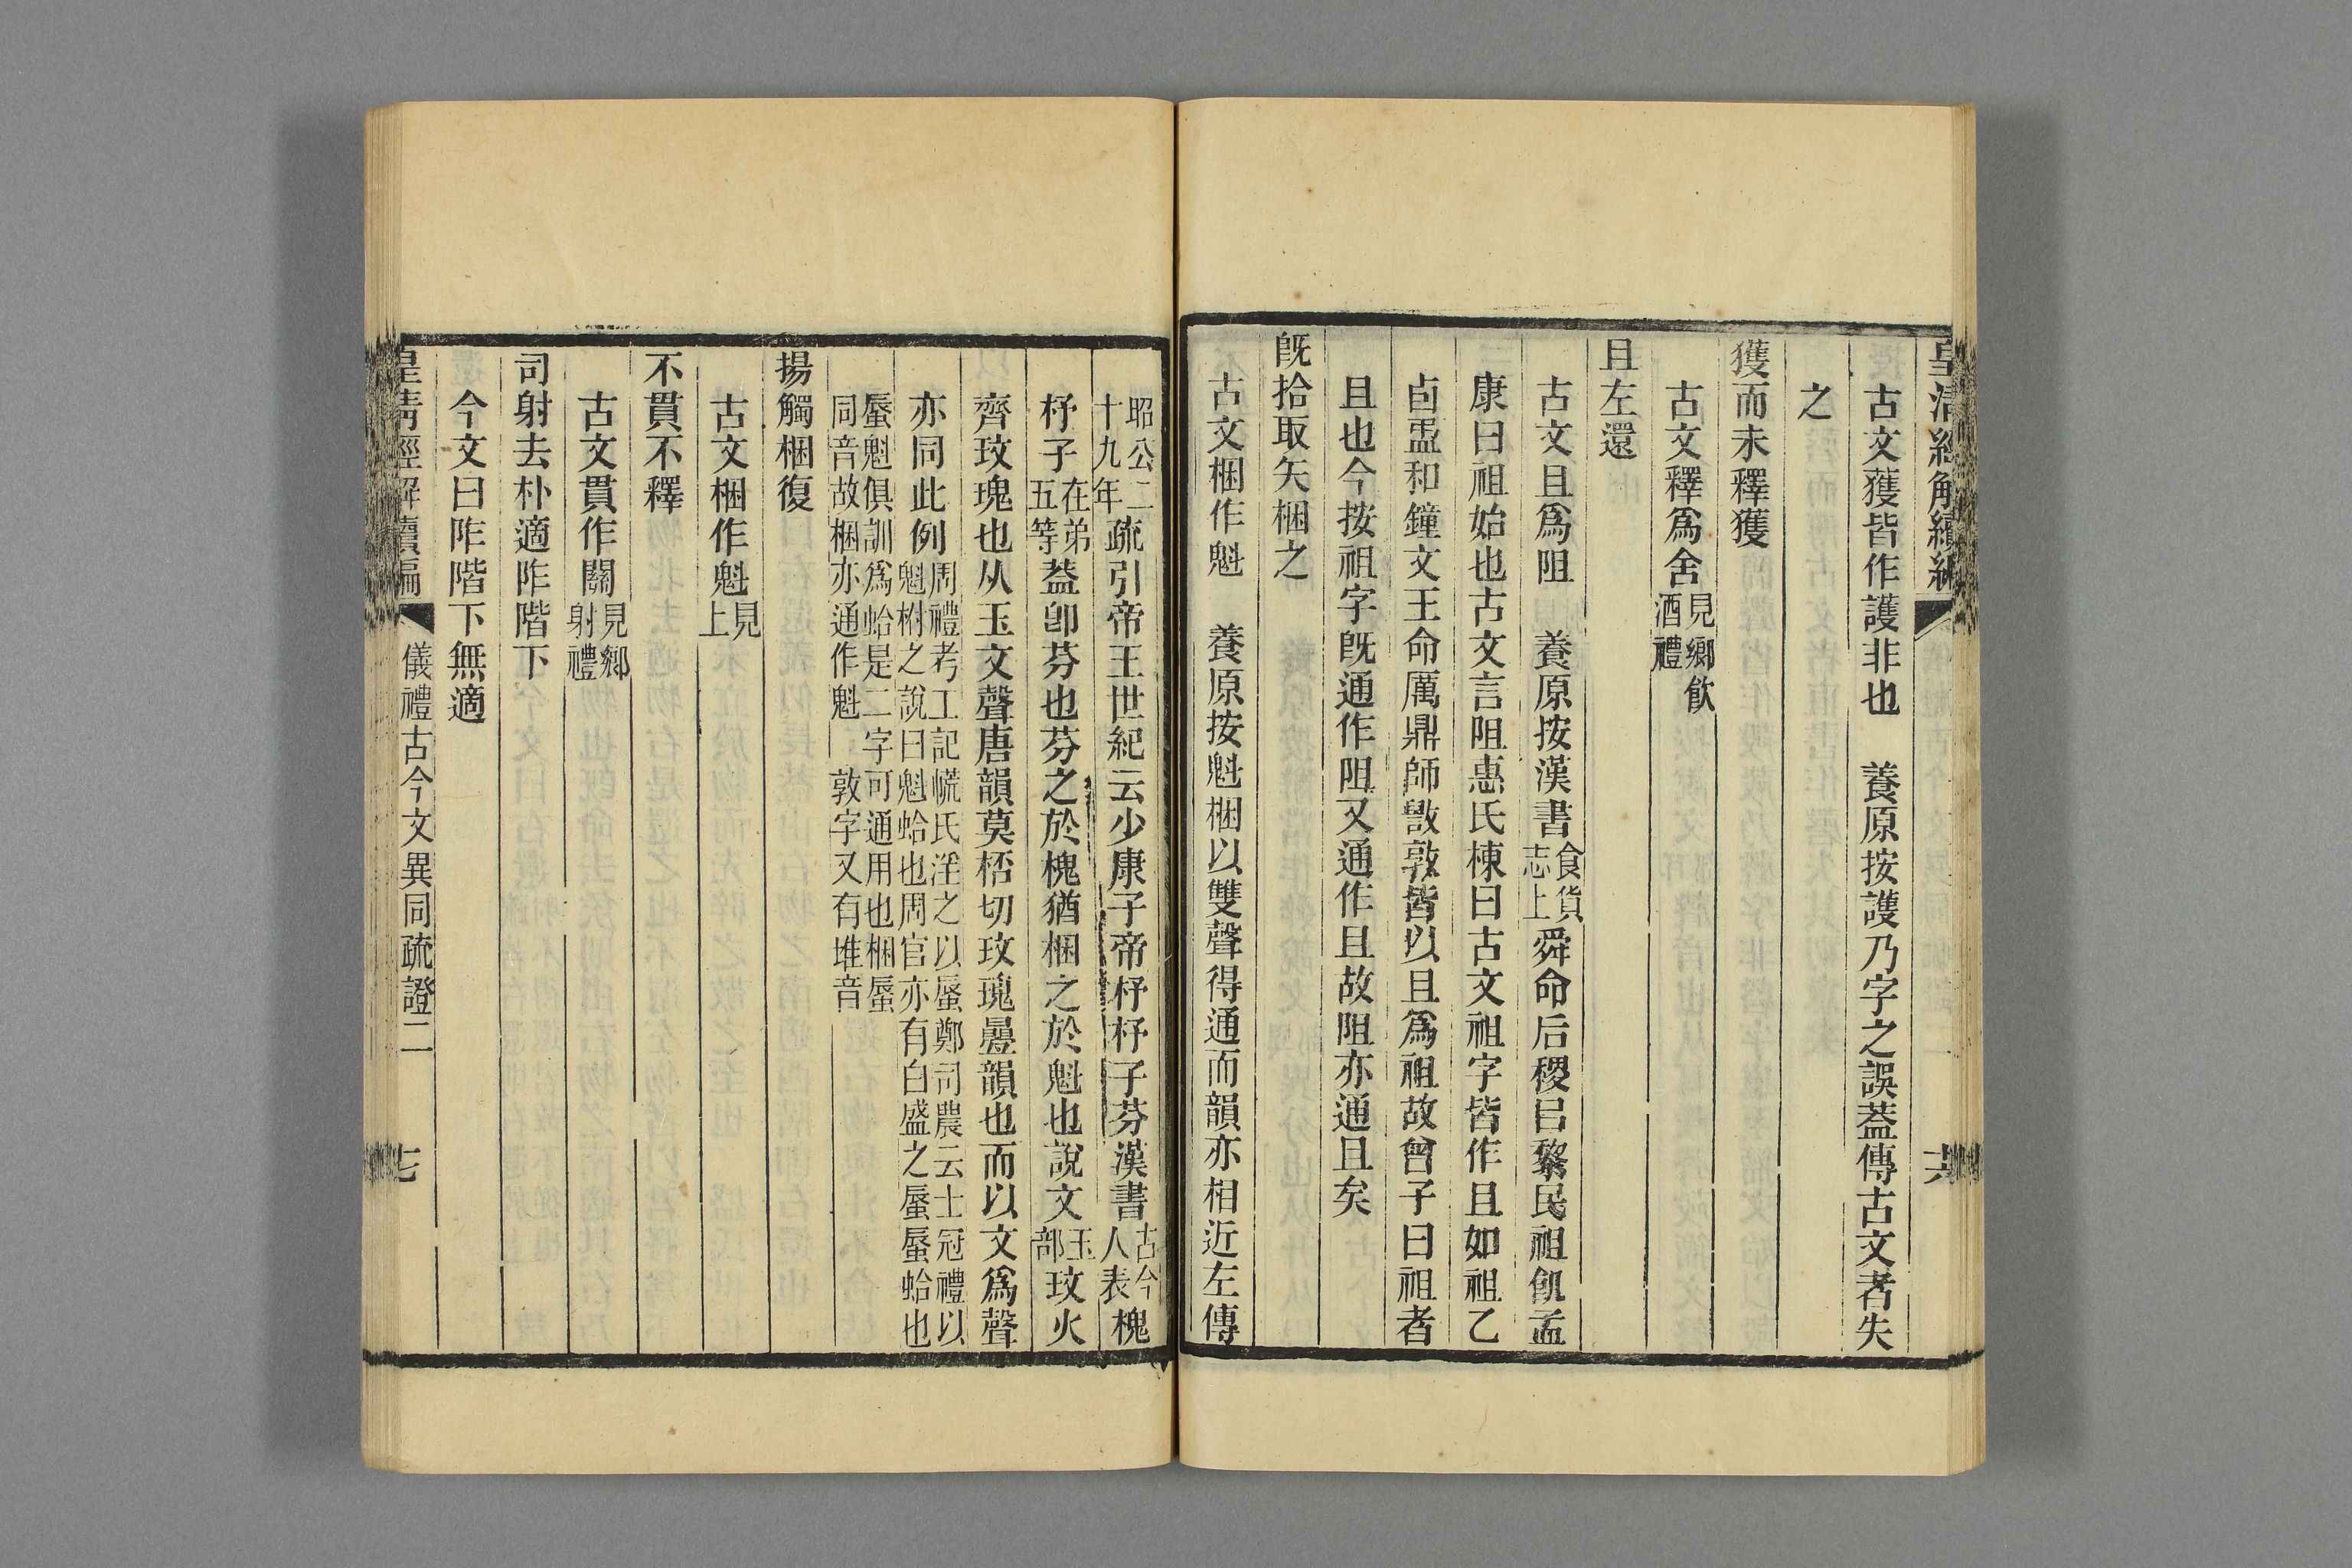 皇清經解續編
古文獲皆作護非也　養原按護乃字之誤葢傳古文者失
之
獲而未釋獲
古文釋爲舍見鄉飮酒禮
且左還
古文且爲阻　養原按漢書食貨志上舜命后稷㠯黎民祖飢孟
康曰祖始也古文言阻惠氏棟曰古文祖字皆作且如祖乙
卣盄和鐘文王命厲鼎師㲃敦皆以且爲祖故曾子曰祖者
且也今按祖字旣通作阻又通作且故阻亦通且矣
旣拾取矢梱之
古文梱作魁　養原按魁梱以雙聲得通而韻亦相近左傳
昭公二十九年疏引帝王世紀云少康子帝杼杼子芬漢書古今人表槐
杼子在弟五等葢卽芬也芬之於槐猶梱之於魁也說文玉部玟火
齊玟瑰也从玉文聲唐韻莫桮切玟瑰疊韻也而以文爲聲
亦同此例周禮考工記㡛氏淫之以蜃鄭司農云士冠禮以魁柎之說曰魁蛤也周官亦有白盛之蜃蜃蛤也
蜃魁俱訓爲蛤是二字可通用也梱蜃同音故梱亦通作魁　敦字又有堆音
揚觸梱復
古文梱作魁見上
不貫不釋
古文貫作關見鄉射禮
司射去朴適阼階下
今文曰阼階下無適
皇清經解續編　儀禮古今文異同疏證二